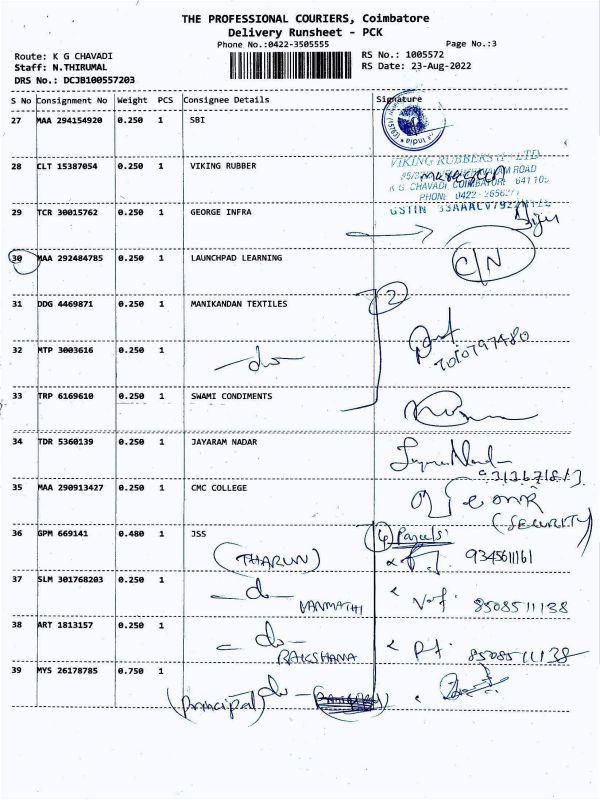 THE PROFESSIONAL COURIERS, Coimbatore
Delivery Runsheet - PCK
Phone No.:0422-3505555 Page No.:3
Route: K G CHAVADI RS No.: 1005572
Staff: N.THIRUMAL RS Date: 23-Aug-2022
DRS No.: DCJB100557203
S No Consignment No Weight PCS Consignee Details Signature
27 MAA 294154920 0.250 1 SBI
28 CLT 15387054 0.250 1 VIKING RUBBER
VIKING RUBBERS
ROAD
K G. CHAVADI, COIMBATORE
PHONE: 0422
GSTIN
29 TCR 30015762 0.250 1 GEORGE INFRA
30 MAA 292484785 0.250 1 LAUNCHPAD LEARNING C/N
31 DDG 4469871 0.250 1 MANIKANDAN TEXTILES 2
32 MTP 3003616 0.250 1 -do-
33 TRP 6169610 0.250 1 SWAMI CONDIMENTS
34 TDR 5360139 0.250 1 JAYARAM NADAR
35 MAA 290913427 0.250 1 CMC COLLEGE
(SECURITY)
36 GPM 669141 0.480 1 JSS
(THARUN) 9345611161
37 SLM 301768203 0.250 1 -do-
VANMATHI 8508511138
38 ART 1813157 0.250 1 -do-
RAKSHANA 8508511138
39 MYS 26178785 0.750 1 -do-
(principal)